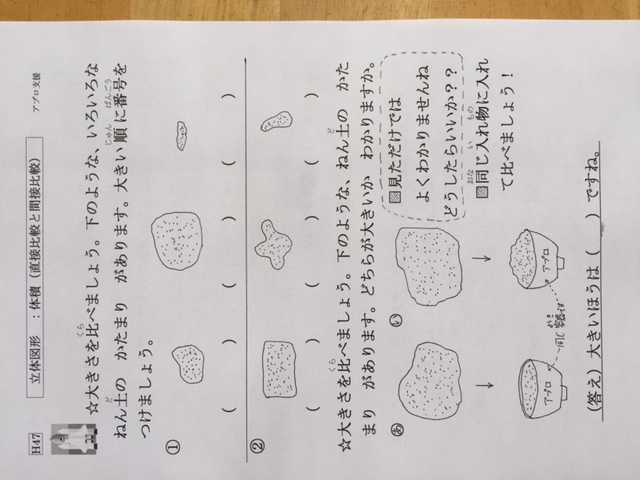 H47 立体図形 ：体積（直接比較と間接比較） アプロ支援
☆大きさを比べましょう。下のような、いろいろな
くら
ねん土の かたまり があります。大きい順に番号を
ど じゅん ばんごう
つけましょう。
①
（ ） （ ） （ ）
②
（ ） （ ） （ ）
☆大きさを比べましょう。下のような、ねん土の かた
くら ど
まり があります。どちらが大きいか わかりますか。
▨見ただけでは
よくわかりませんね
どうしたらいいか？？
▨同じ入れ物に入れ
おな い もの
て比べましょう！
あ
い
↓
↓
アプロ
アプロ
同じ容器
ようき
（答え）大きいほうは（ ）ですね。